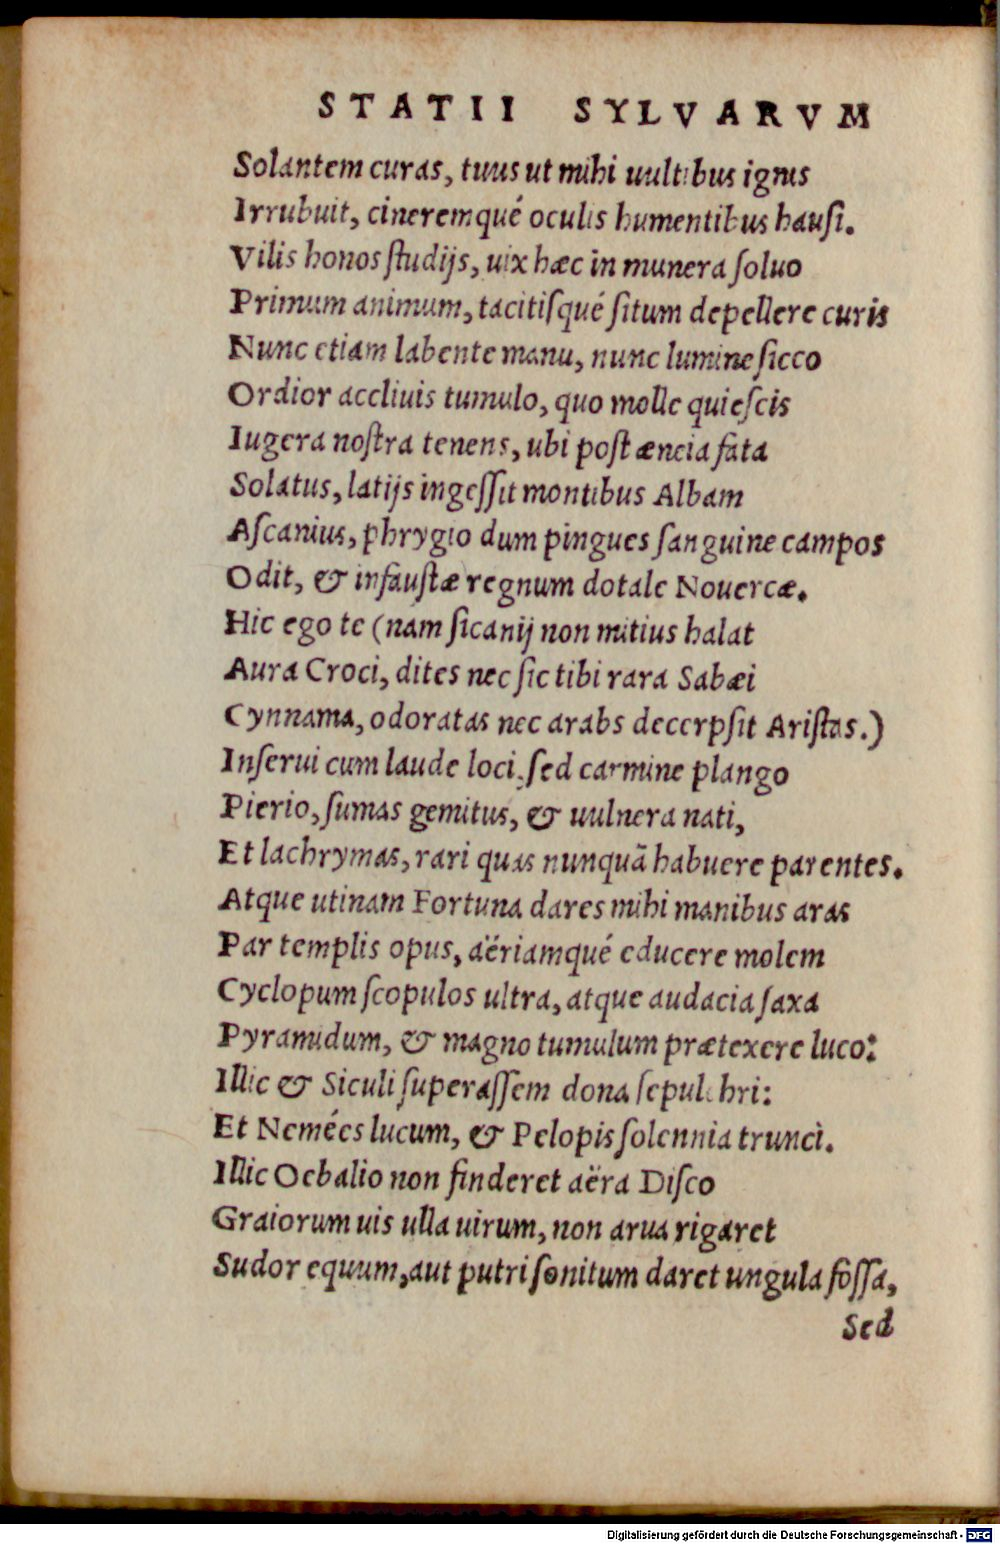 STATII SYLVARVM
Solantem curas, tuus ut mihi uultibus ignis
Irrubuit, cineremqué oculis humentibus hausi.
Vilis honos studijs, uix hæc in munera soluo
Primum animum, tacitisqué situm depellere curis
Nunc etiam labente manu, nunc lumine sicco
Ordior accliuis tumulo, quo molle quiescis
Iugera nostra tenens, ubi post æneia fata
Solatus, latijs ingessit montibus Albam
Ascanius, phrygio dum pingues sanguine campos
Odit, & infaustæ regnum dotale Nouercæ.
Hic ego te (nam sicanij non mitius halat
Aura Croci, dites nec sic tibi rara Sabæi
Cynnama, odoratas nec arabs decerpsit Aristas.)
Inserui cum laude loci, sed carmine plango
Pierio, sumas gemitus, & uulnera nati,
Et lachrymas, rari quas nunquā habuere parentes.
Atque utinam Fortuna dares mihi manibus aras
Par templis opus, aëriamqué educere molem
Cyclopum scopulos ultra, atque audacia saxa
Pyramidum, & magno tumulum prætexere luco:
Illic & Siculi superassem dona sepulchri:
Et Nemées lucum, & Pelopis solennia trunci.
Illic Oebalio non finderet aëra Disco
Graiorum uis ulla uirum, non arua rigaret
Sudor equum, aut putri sonitum daret ungula fossa,
Sed
Digitalisierung gefördert durch die Deutsche Forschungsgemeinschaft - DFG